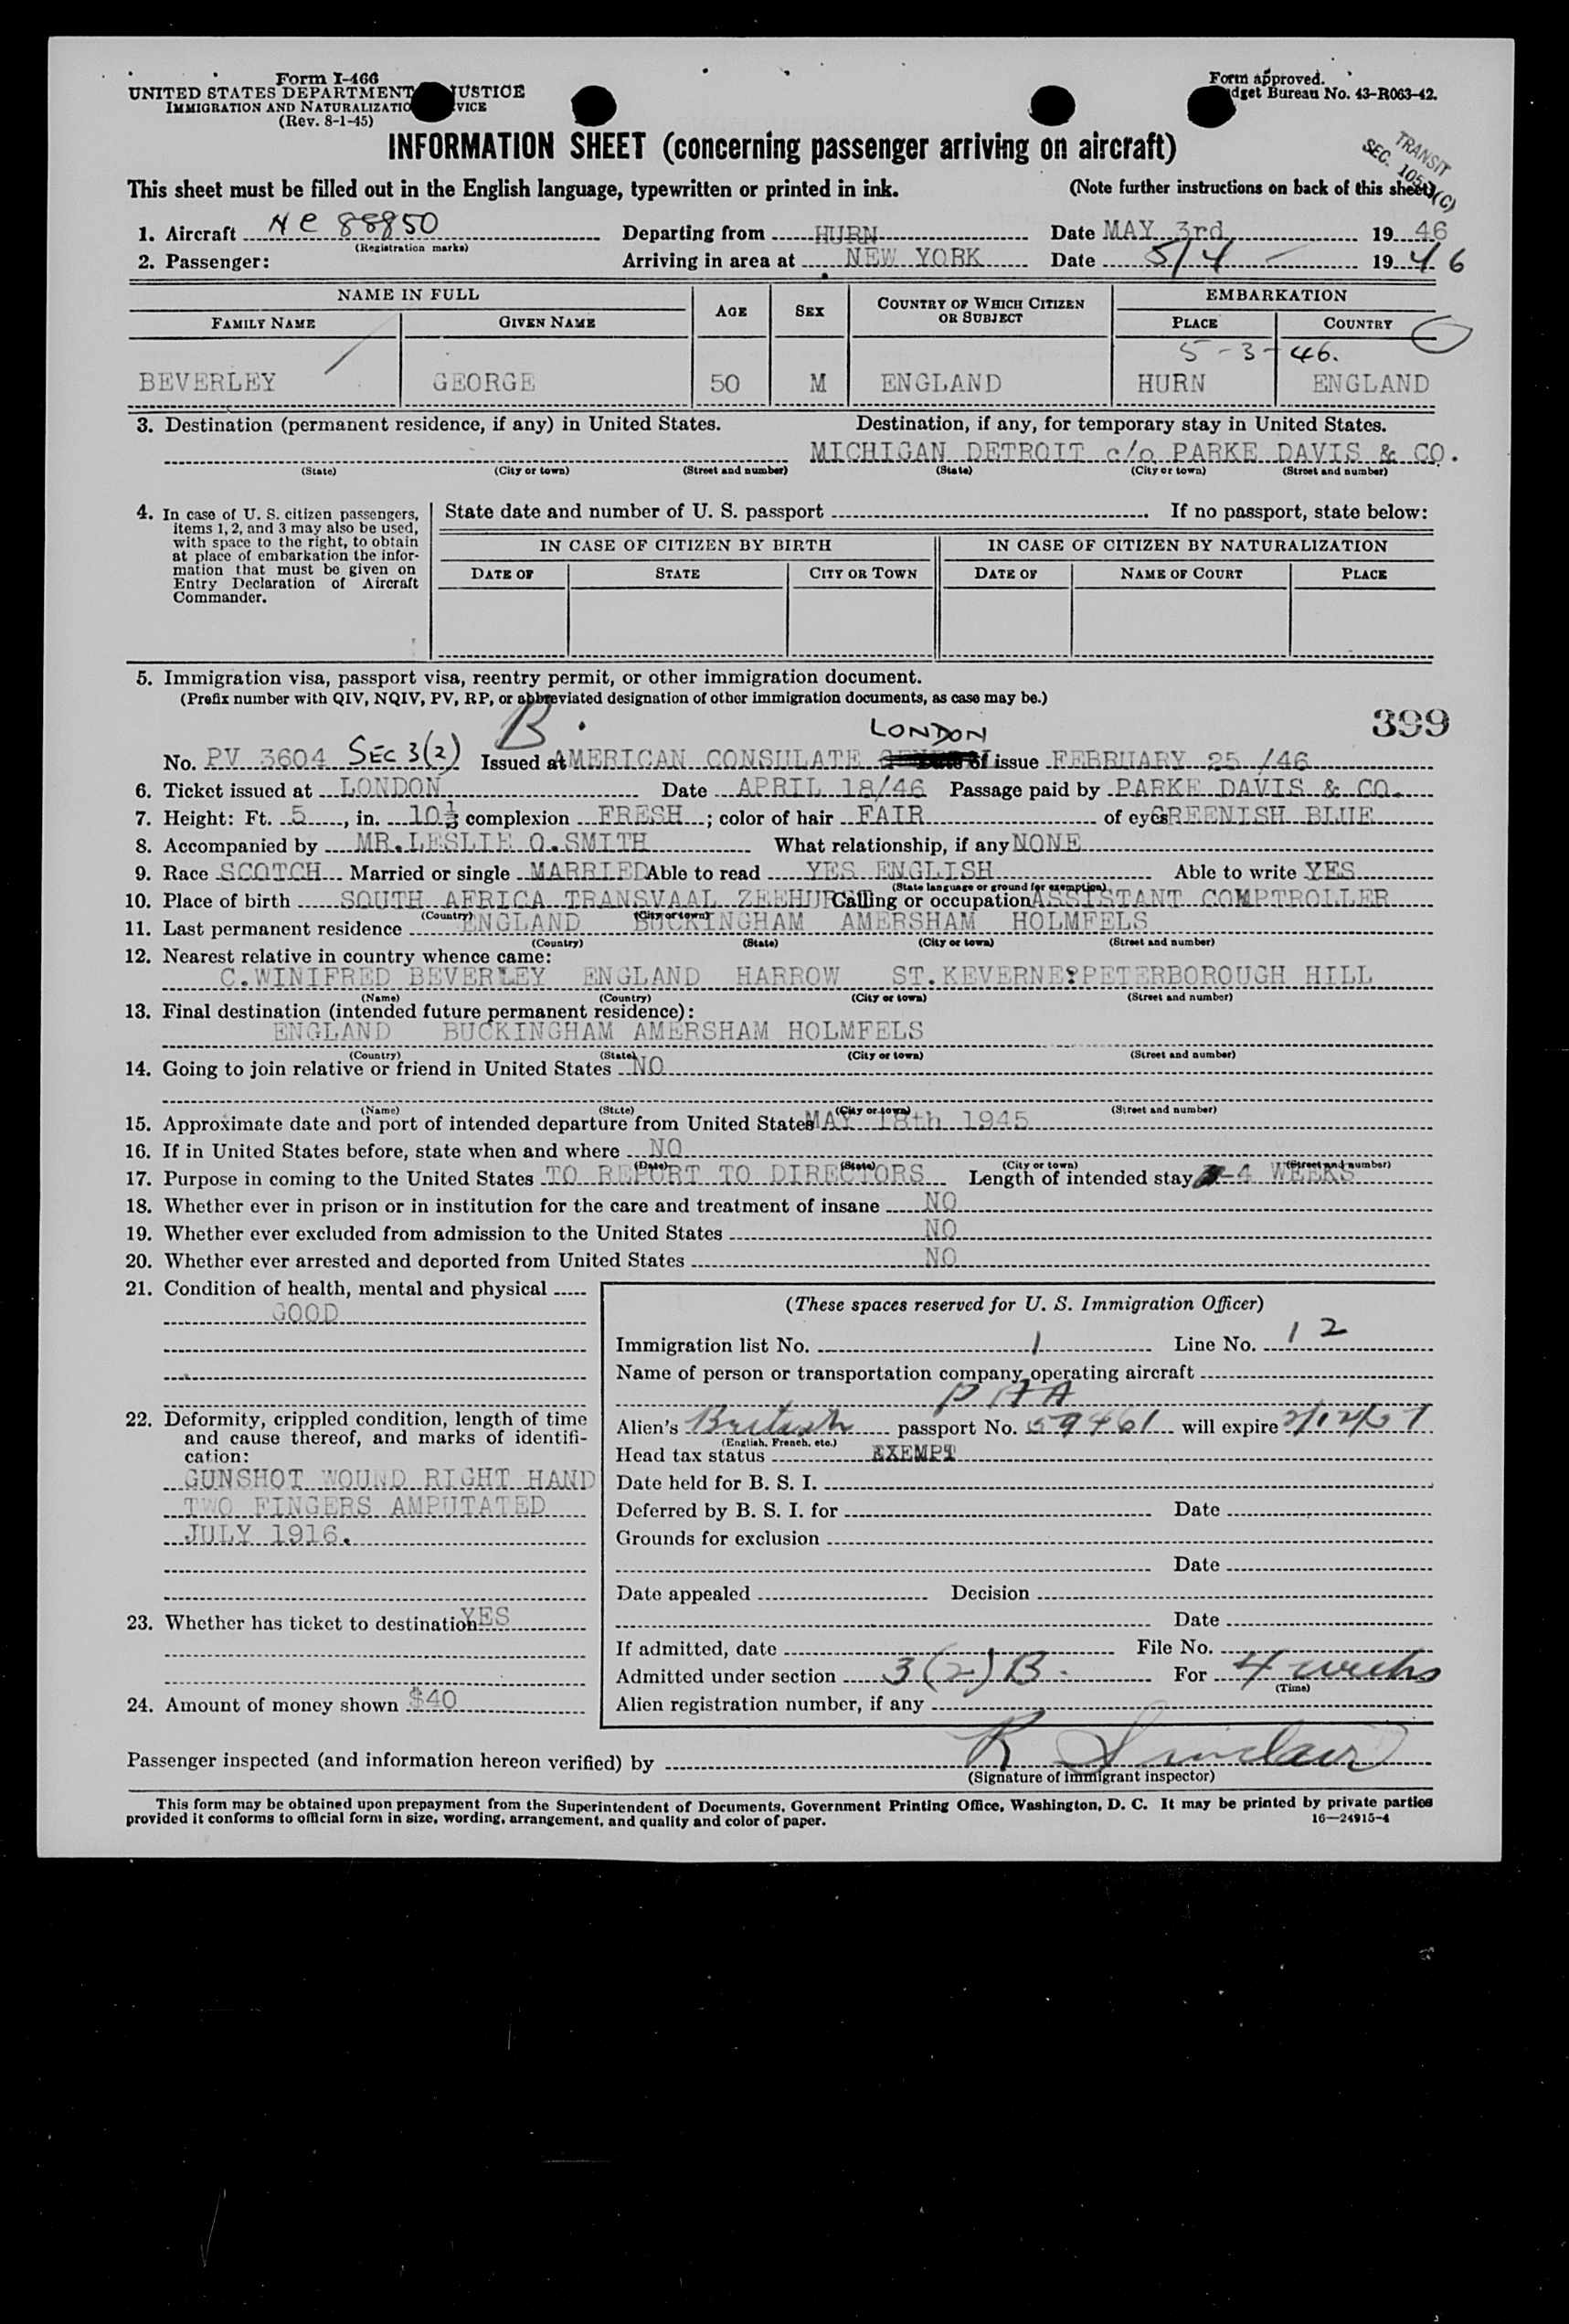 Form I-466
UNITED STATES DEPARTMENT JUSTICE
IMMIGRATION AND NATURALIZATIO VICE
(Rev. 8-1-45)
Form approved.
dget Bureau No. 43-R063-42.
INFORMATION SHEET (concerning passenger arriving on aircraft)
TRANSIT
SEC. 105.3(C)
This sheet must be filled out in the English language, typewritten or printed in ink. (Note further instructions on back of this sheet)
1. Aircraft NC 88850 Departing from HURN Date MAY 3rd 19 46
(Registration marks)
2. Passenger: Arriving in area at NEW YORK Date 5/4 19 46
NAME IN FULL AGE SEX COUNTRY OF WHICH CITIZEN OR SUBJECT EMBARKATION
FAMILY NAME GIVEN NAME PLACE COUNTRY
5-3-46.
BEVERLEY GEORGE 50 M ENGLAND HURN ENGLAND
3. Destination (permanent residence, if any) in United States. Destination, if any, for temporary stay in United States.
MICHIGAN DETROIT c/o PARKE DAVIS & CO.
(State) (City or town) (Street and number) (State) (City or town) (Street and number)
4. In case of U. S. citizen passengers, items 1, 2, and 3 may also be used, with space to the right, to obtain at place of embarkation the information that must be given on Entry Declaration of Aircraft Commander.
State date and number of U. S. passport If no passport, state below:
IN CASE OF CITIZEN BY BIRTH IN CASE OF CITIZEN BY NATURALIZATION
DATE OF STATE CITY OR TOWN DATE OF NAME OF COURT PLACE
5. Immigration visa, passport visa, reentry permit, or other immigration document.
(Prefix number with QIV, NQIV, PV, RP, or abbreviated designation of other immigration documents, as case may be.)
399
B. LONDON
No. PV 3604 SEC 3(2) Issued at AMERICAN CONSULATE of issue FEBRUARY 25 /46
6. Ticket issued at LONDON Date APRIL 18/46 Passage paid by PARKE DAVIS & CO.
7. Height: Ft. 5, in. 10½ complexion FRESH; color of hair FAIR of eyes GREENISH BLUE
8. Accompanied by MR. LESLIE O. SMITH What relationship, if any NONE
9. Race SCOTCH Married or single MARRIED Able to read YES ENGLISH Able to write YES
(State language or ground for exemption)
10. Place of birth SOUTH AFRICA TRANSVAAL ZEEHURST Calling or occupation ASSISTANT COMPTROLLER
(Country) (City or town)
11. Last permanent residence ENGLAND BUCKINGHAM AMERSHAM HOLMFELS
(Country) (State) (City or town) (Street and number)
12. Nearest relative in country whence came:
C. WINIFRED BEVERLEY ENGLAND HARROW ST. KEVERNE, PETERBOROUGH HILL
(Name) (Country) (City or town) (Street and number)
13. Final destination (intended future permanent residence):
ENGLAND BUCKINGHAM AMERSHAM HOLMFELS
(Country) (State) (City or town) (Street and number)
14. Going to join relative or friend in United States NO
(Name) (State) (City or town) (Street and number)
15. Approximate date and port of intended departure from United States MAY 18th 1945
16. If in United States before, state when and where NO
(Date) (State) (City or town) (Street and number)
17. Purpose in coming to the United States TO REPORT TO DIRECTORS Length of intended stay -4 WEEKS
18. Whether ever in prison or in institution for the care and treatment of insane NO
19. Whether ever excluded from admission to the United States NO
20. Whether ever arrested and deported from United States NO
21. Condition of health, mental and physical
GOOD
22. Deformity, crippled condition, length of time and cause thereof, and marks of identification:
GUNSHOT WOUND RIGHT HAND
TWO FINGERS AMPUTATED
JULY 1916.
23. Whether has ticket to destination YES
24. Amount of money shown $40
(These spaces reserved for U. S. Immigration Officer)
Immigration list No. 1 Line No. 12
Name of person or transportation company operating aircraft
PAA
Alien's British passport No. 59461 will expire
(English, French, etc.)
Head tax status EXEMPT
Date held for B. S. I.
Deferred by B. S. I. for Date
Grounds for exclusion
Date
Date appealed Decision
Date
If admitted, date File No.
Admitted under section 3(2)B. For 4 weeks
(Time)
Alien registration number, if any
Passenger inspected (and information hereon verified) by R Sinclair
(Signature of immigrant inspector)
This form may be obtained upon prepayment from the Superintendent of Documents, Government Printing Office, Washington, D. C. It may be printed by private parties
provided it conforms to official form in size, wording, arrangement, and quality and color of paper. 16—24915-4